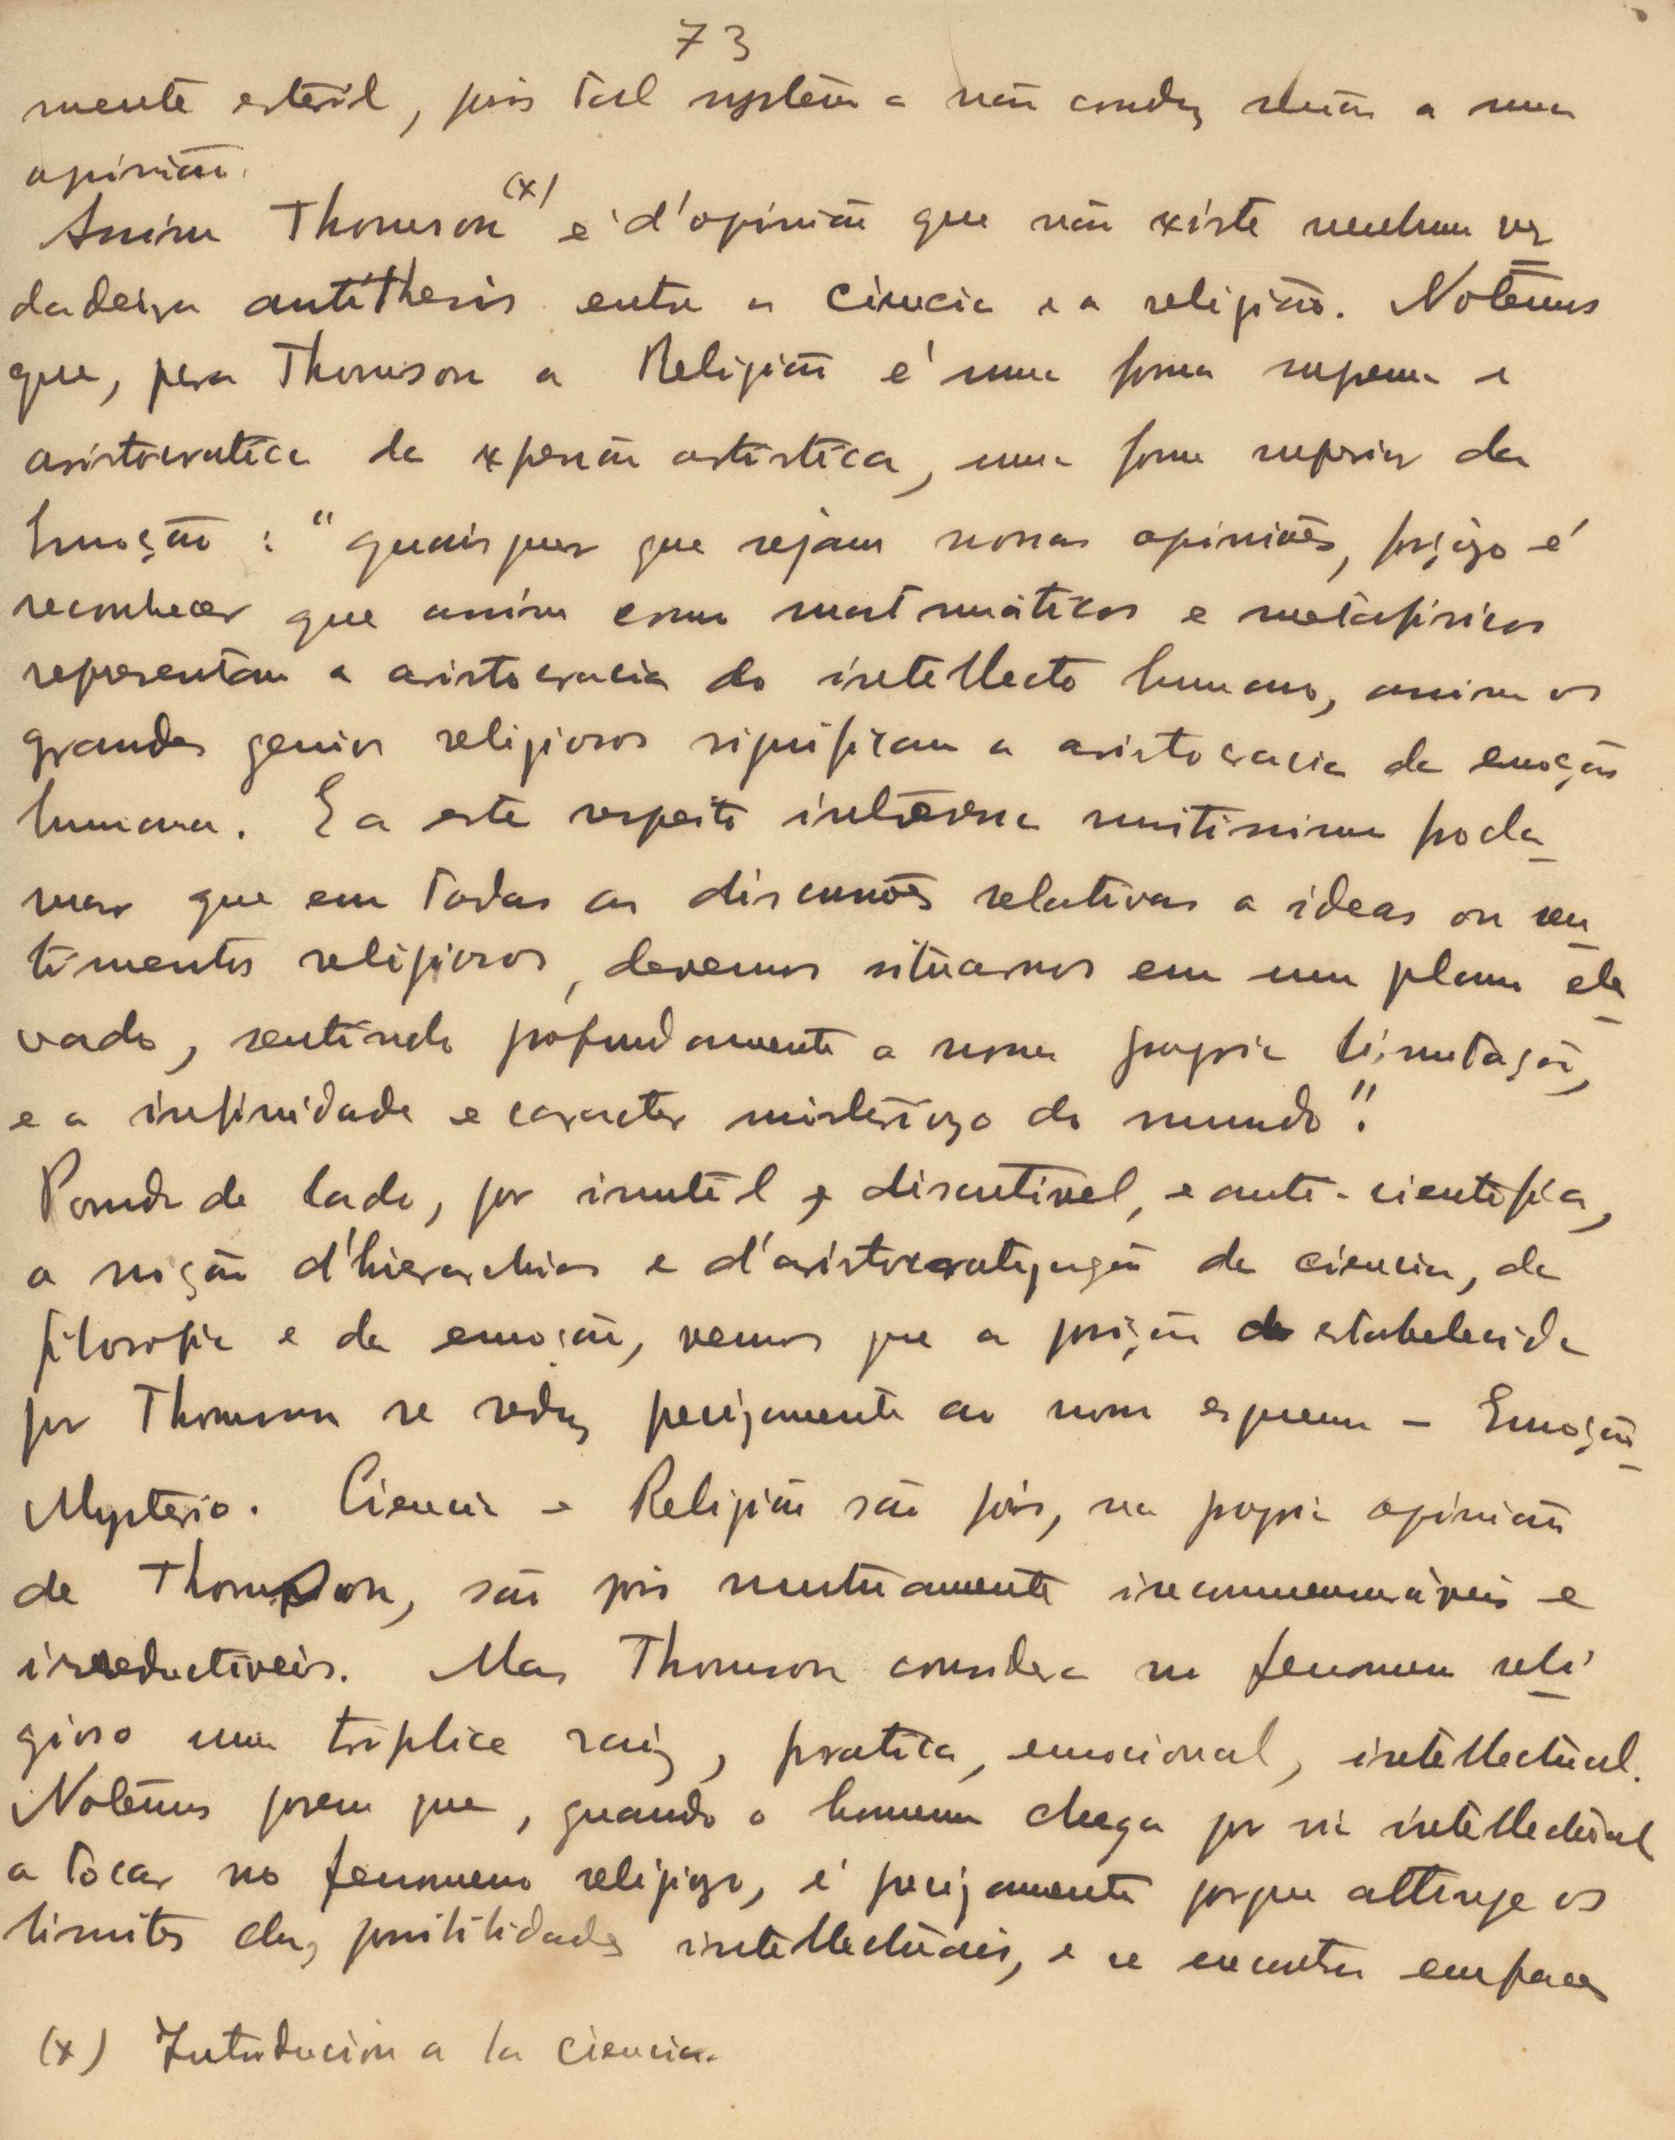 73
mente esteril, pois tal systema não conduz senão a uma
opinião.
Assim Thomson (x) é d'opinião que não existe nenhuma ver
dadeira antithesis entre a ciencia e a religião. Notemos
que, para Thomson a Religião é uma forma suprema e
aristocratica da expressão artistica, uma forma superior da
Emoção: "quaisquer que sejam nossas opiniões, forçozo é
reconhecer que assim como matematicos e metafisicos
representam a aristocracia do intellecto humano, assim os
grandes genios religiosos significam a aristocracia da emoção
humana. E a este respeito interessa muitissimo procla-
mar que em todas as discussões relativas a ideas ou sen
timentos religiosos, devemos situarnos em um plano ele
vado, sentindo profundamente a nossa propria limitação,
e a infinidade e caracter misteriozo do mundo".
Pondo de lado, por inutil e discutivel, e anti-cientifica,
a noção d'hierarchias e d'aristocratização da ciencia, da
filosofia e da emoção, vemos que a posição estabelecida
por Thomson se reduz precizamente ao nosso esquema - Emoção
Mysterio. Ciencia e Religião são pois, na propria opinião
de Thomson, são pois mutuamente incommensuraveis e
irreductiveis. Mas Thomson considera no fenomeno reli
gioso uma triplice raiz, pratica, emocional, intellectual.
Notemos porem que, quando o homem chega por via intellectual
a tocar no fenomeno religiozo, é precizamente porque attinge os
limites das possibilidades intellectuais, e se encontra em face
(x) Introducion a la ciencia.